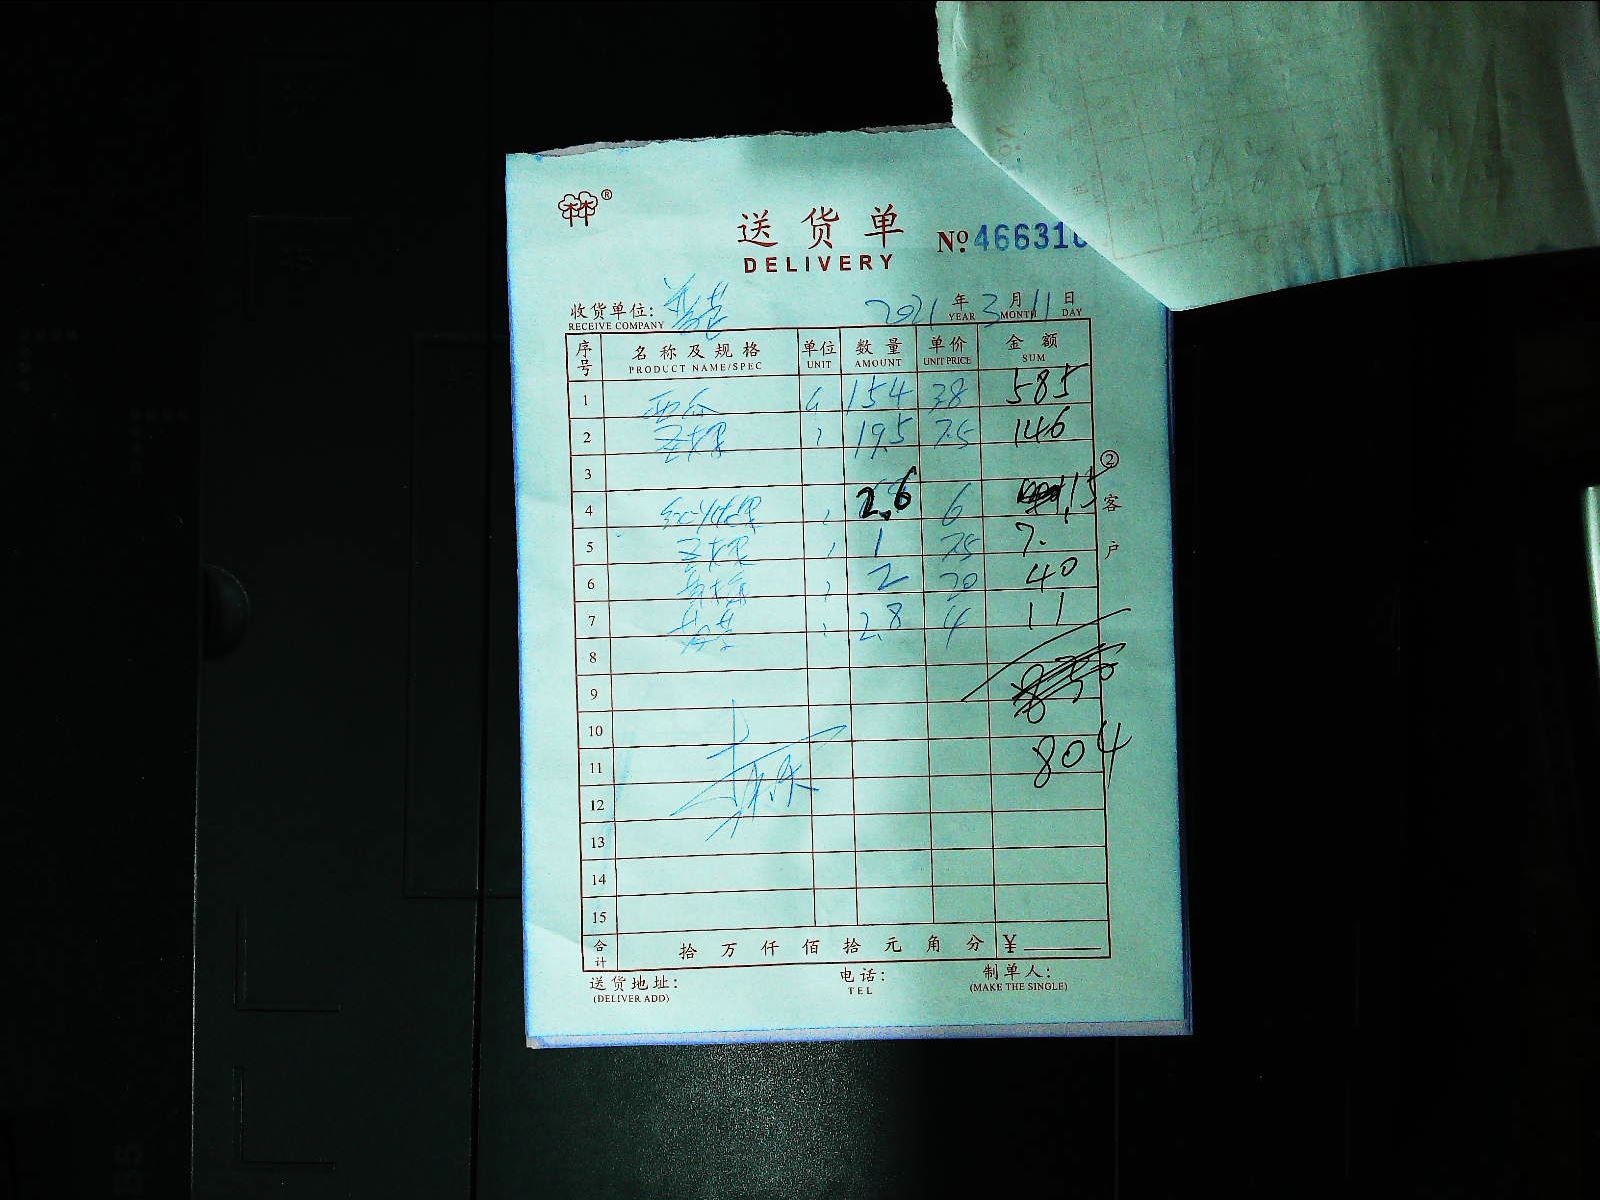 林®
送货单
DELIVERY
No. 46631
收货单位:
RECEIVE COMPANY
2021 年 3 月 11 日
YEAR MONTH DAY
序号 名称及规格 单位 数量 单价 金额
PRODUCT NAME/SPEC UNIT AMOUNT UNIT PRICE SUM
1 154 3.8 585
2 19.5 7.5 146
3
4 2.6 6 15
5 1 7.5 7.
6 2 20 40
7 2.8 4 11
8
9
10
11 804
12
13
14
15
合计 拾 万 仟 佰 拾 元 角 分 ¥
②客户
送货地址: 电话: 制单人:
(DELIVER ADD) TEL (MAKE THE SINGLE)